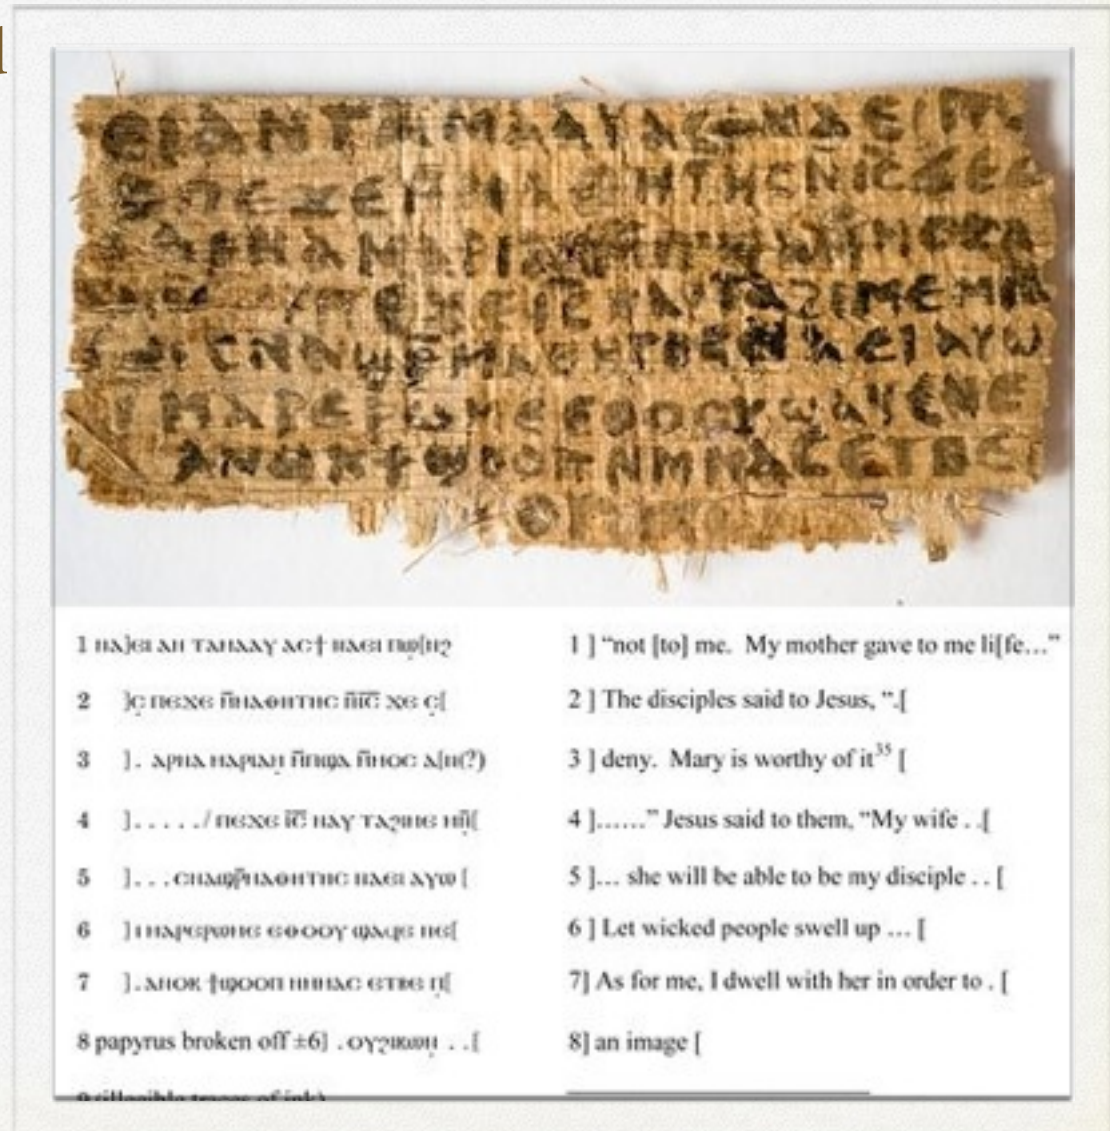 ⲉⲓⲁⲛⲧⲁⲙⲁⲁⲩⲁⲥϯⲛⲁⲉⲓⲡ
ⲥⲡⲉϫⲉⲙⲙⲁⲑⲏⲧⲏⲥⲛⲓ̅ⲥ̅ϫⲉⲥ
ⲁⲣⲛⲁⲙⲁⲣⲓⲁⲙⲙⲡϣⲁⲙⲙⲟⲥⲁ
ⲡⲉϫⲉⲓ̅ⲥ̅ⲛⲁⲩⲧⲁϩⲓⲙⲉⲙⲛ
ⲥⲛⲁϣⲣ̅ⲙⲁⲑⲏⲧⲏⲥⲛⲁⲉⲓⲁⲩⲱ
ⲓⲙⲁⲣⲉⲣⲱⲙⲉⲉⲑⲟⲟⲩϣⲁϥⲉⲛⲉ
ⲁⲛⲟⲕϯϣⲟⲟⲡⲛⲙⲙⲁⲥⲉⲧⲃⲉⲡ
1 ⲛⲁ]ⲉⲓ ⲁⲛ ⲧⲁⲙⲁⲁⲩ ⲁⲥϯ ⲛⲁⲉⲓ ⲡⲱ̣[ⲛϩ
2 ]ⲥ̣ ⲡⲉϫⲉ ⲙ̅ⲙⲁⲑⲏⲧⲏⲥ ⲛ̅ⲓ̅ⲥ̅ ϫⲉ ⲥ̣[
3 ]. ⲁⲣⲛⲁ ⲙⲁⲣⲓⲁⲙ̣ ⲙ̅ⲡϣⲁ ⲙ̅ⲙⲟⲥ ⲁ[ⲛ(?)
4 ]...../ ⲡⲉϫⲉ ⲓ̅ⲥ̅ ⲛⲁⲩ ⲧⲁϩⲓⲙⲉ ⲙⲛ̣̅[
5 ]...ⲥⲛⲁϣⲣ̅ⲙⲁⲑⲏⲧⲏⲥ ⲛⲁⲉⲓ ⲁⲩⲱ [
6 ]ⲓ ⲙⲁⲣⲉⲣⲱⲙⲉ ⲉⲑⲟⲟⲩ ϣⲁϥⲉ ⲛⲉ[
7 ].ⲁⲛⲟⲕ ϯϣⲟⲟⲡ ⲛⲙⲙⲁⲥ ⲉⲧⲃⲉ ⲡ̣[
8 papyrus broken off ±6] .ⲟⲩϩⲓⲕⲱⲛ̣ ..[
9 (illegible traces of ink)
1 ] “not [to] me. My mother gave to me li[fe…”
2 ] The disciples said to Jesus, “.[
3 ] deny. Mary is worthy of it35 [
4 ]……” Jesus said to them, “My wife . .[
5 ]… she will be able to be my disciple . . [
6 ] Let wicked people swell up … [
7] As for me, I dwell with her in order to . [
8] an image [